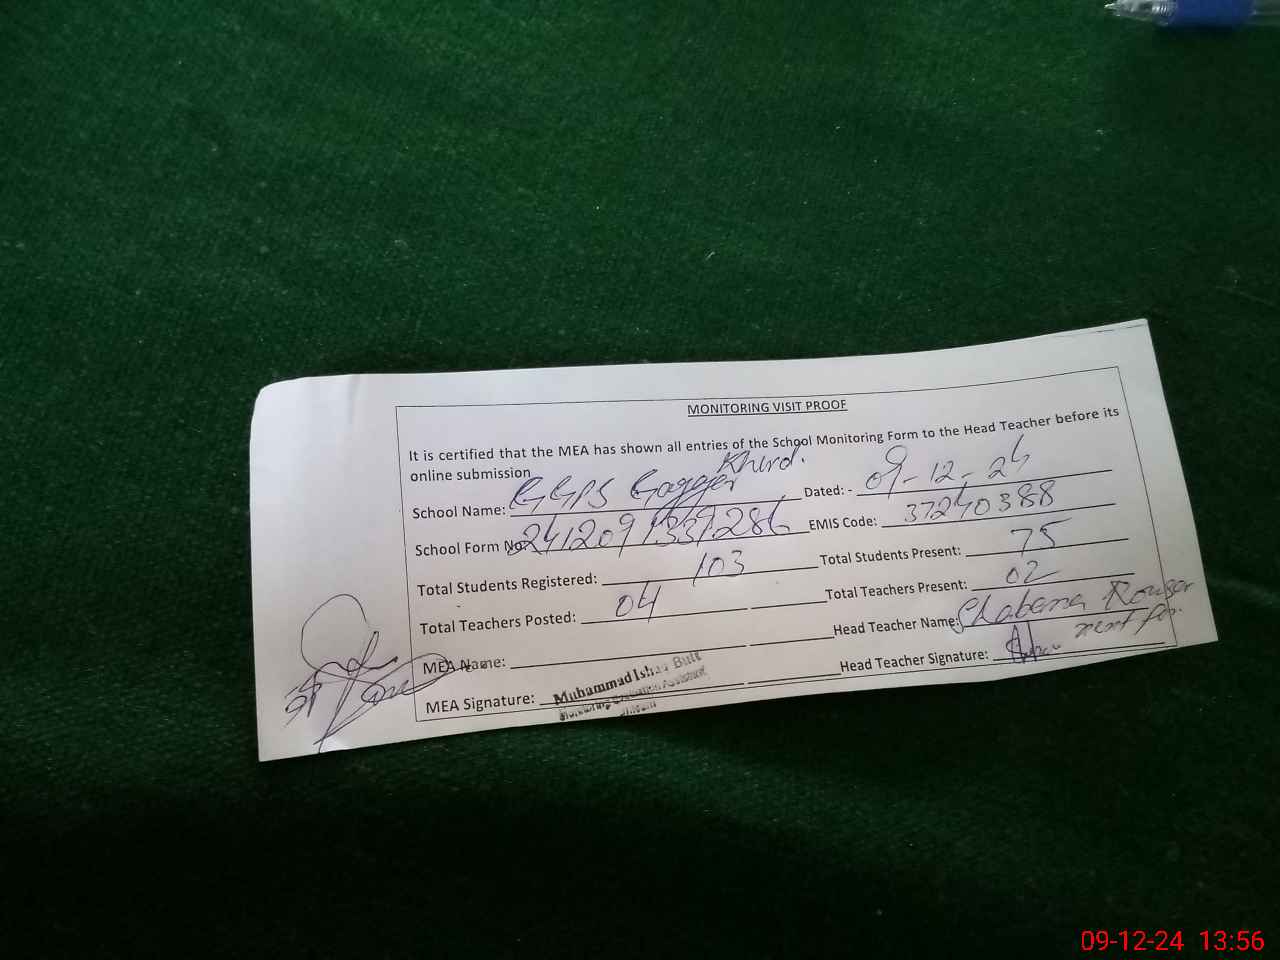 MONITORING VISIT PROOF
It is certified that the MEA has shown all entries of the School Monitoring Form to the Head Teacher before its
online submission
School Name: GGPS Gagger Khurd. Dated: - 09-12-24
School Form No: 241209 EMIS Code: 37240388
Total Students Registered: 103 Total Students Present: 75
Total Teachers Posted: 04 Total Teachers Present: 02
MEA Name: Head Teacher Name: Shabana
MEA Signature: Muhammad Ishaq Butt Head Teacher Signature:
Monitoring Evaluation Assistant
09-12-24 13:56